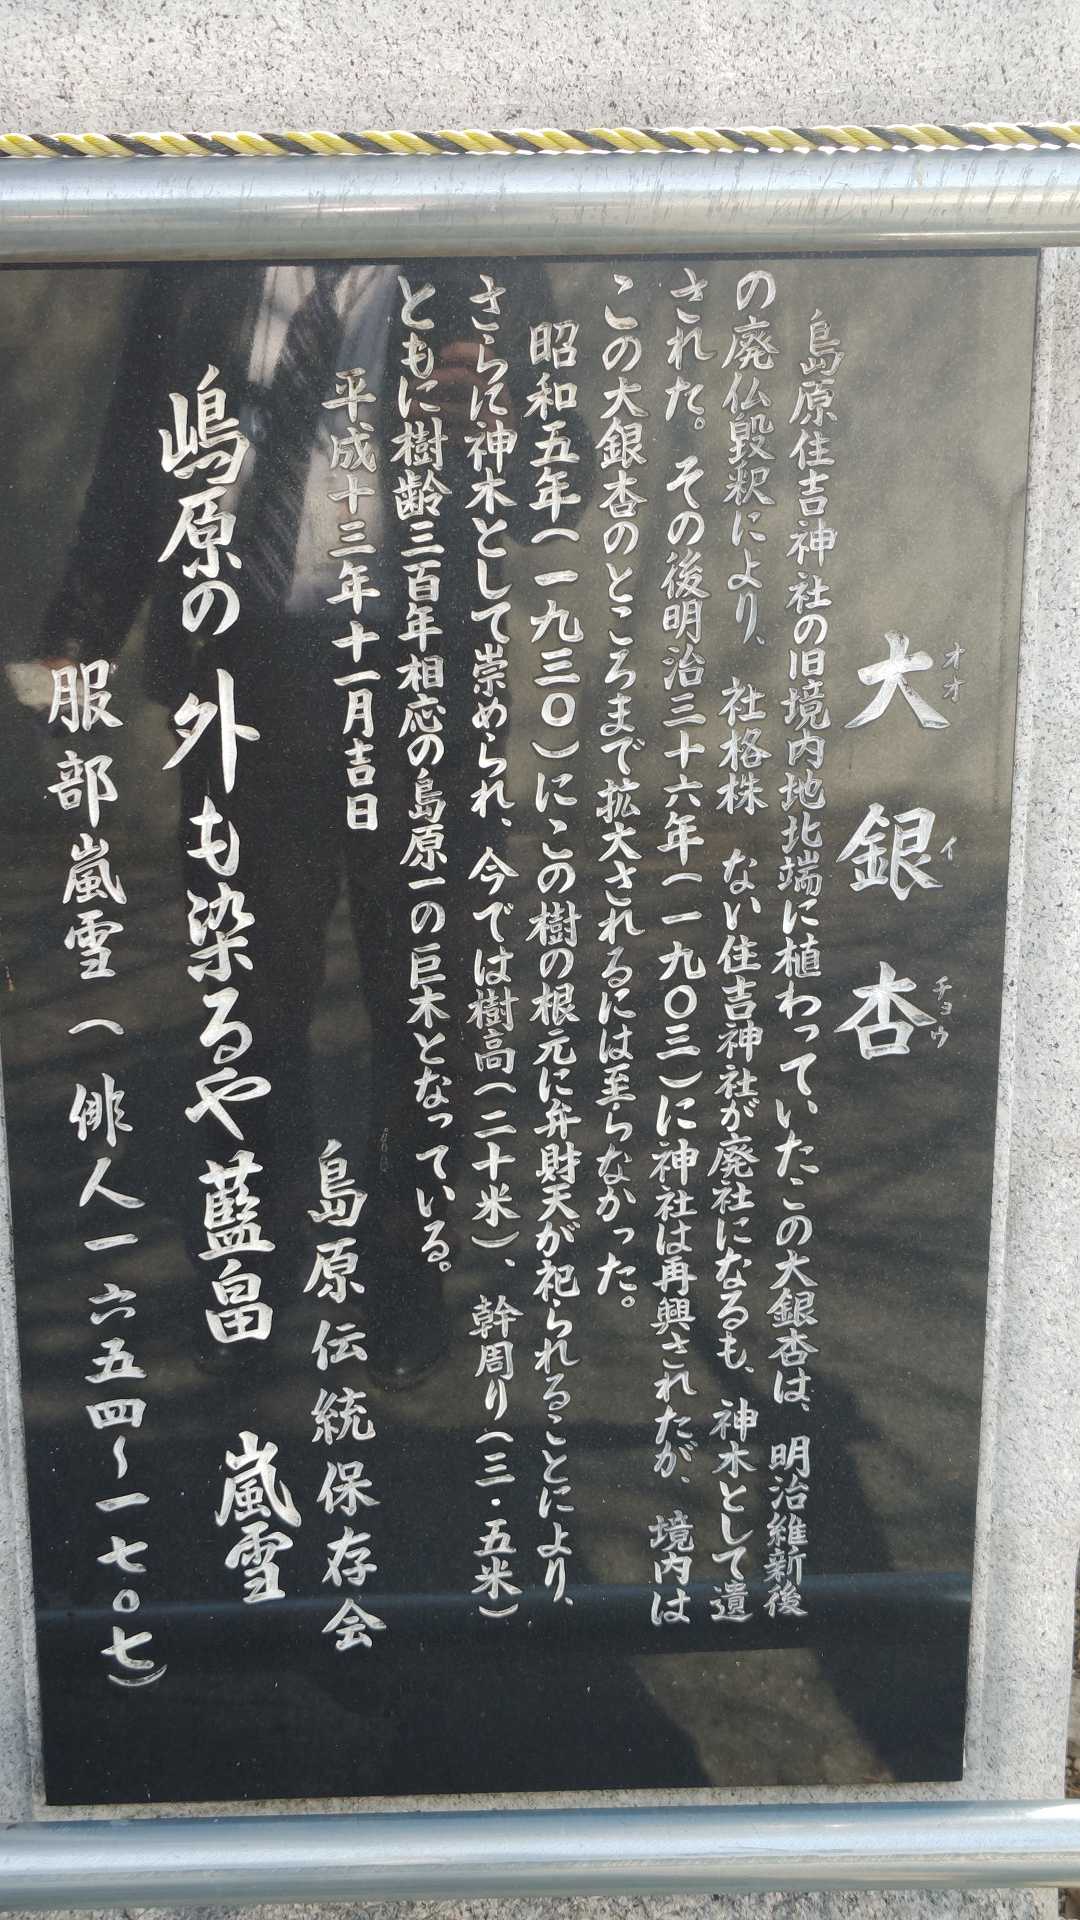 大銀杏
オオイチョウ
島原住吉神社の旧境内地北端に植わっていたこの大銀杏は、明治維新後
の廃仏毀釈により、社格株 ない住吉神社が廃社になるも、神木として遺
された。その後明治三十六年(一九〇三)に神社は再興されたが、境内は
この大銀杏のところまで拡大されるには至らなかった。
昭和五年(一九三〇)にこの樹の根元に弁財天が祀られることにより、
さらに神木として崇められ、今では樹高(二十米)、幹周り(三・五米)
ともに樹齢三百年相応の島原一の巨木となっている。
平成十三年十一月吉日
島原伝統保存会
嶋原の 外も染るや 藍畠 嵐雪
服部嵐雪(俳人一六五四~一七〇七)